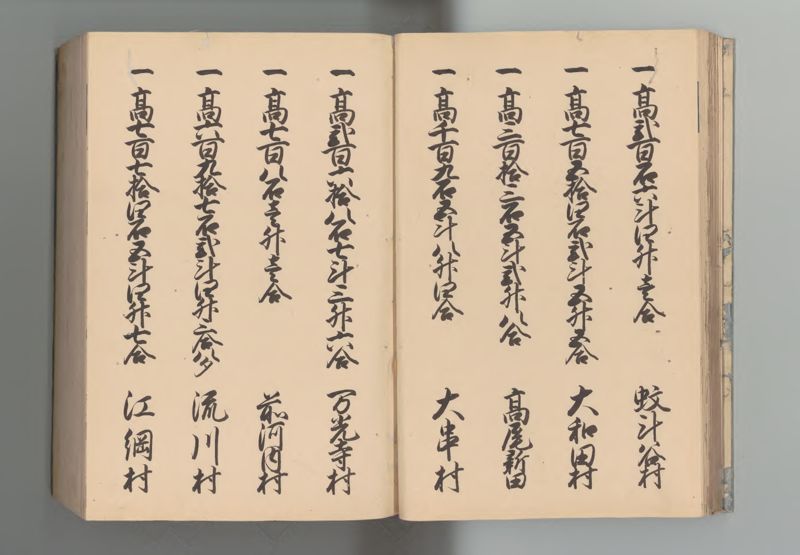 一高弐百石六斗四升壱合　蚊斗谷村
一高七百五拾四石弐斗五升五合　大和田村
一高三百拾三石五斗弐升八合　高尾新田
一高千百九石五斗八升四合　大串村
一高弐百六拾八石七斗三升六合　万光寺村
一高七百八石壱升壱合　前河内村
一高六百九拾七石弐斗四升六合八夕　流川村
一高七百七拾四石五斗四升七合　江綱村